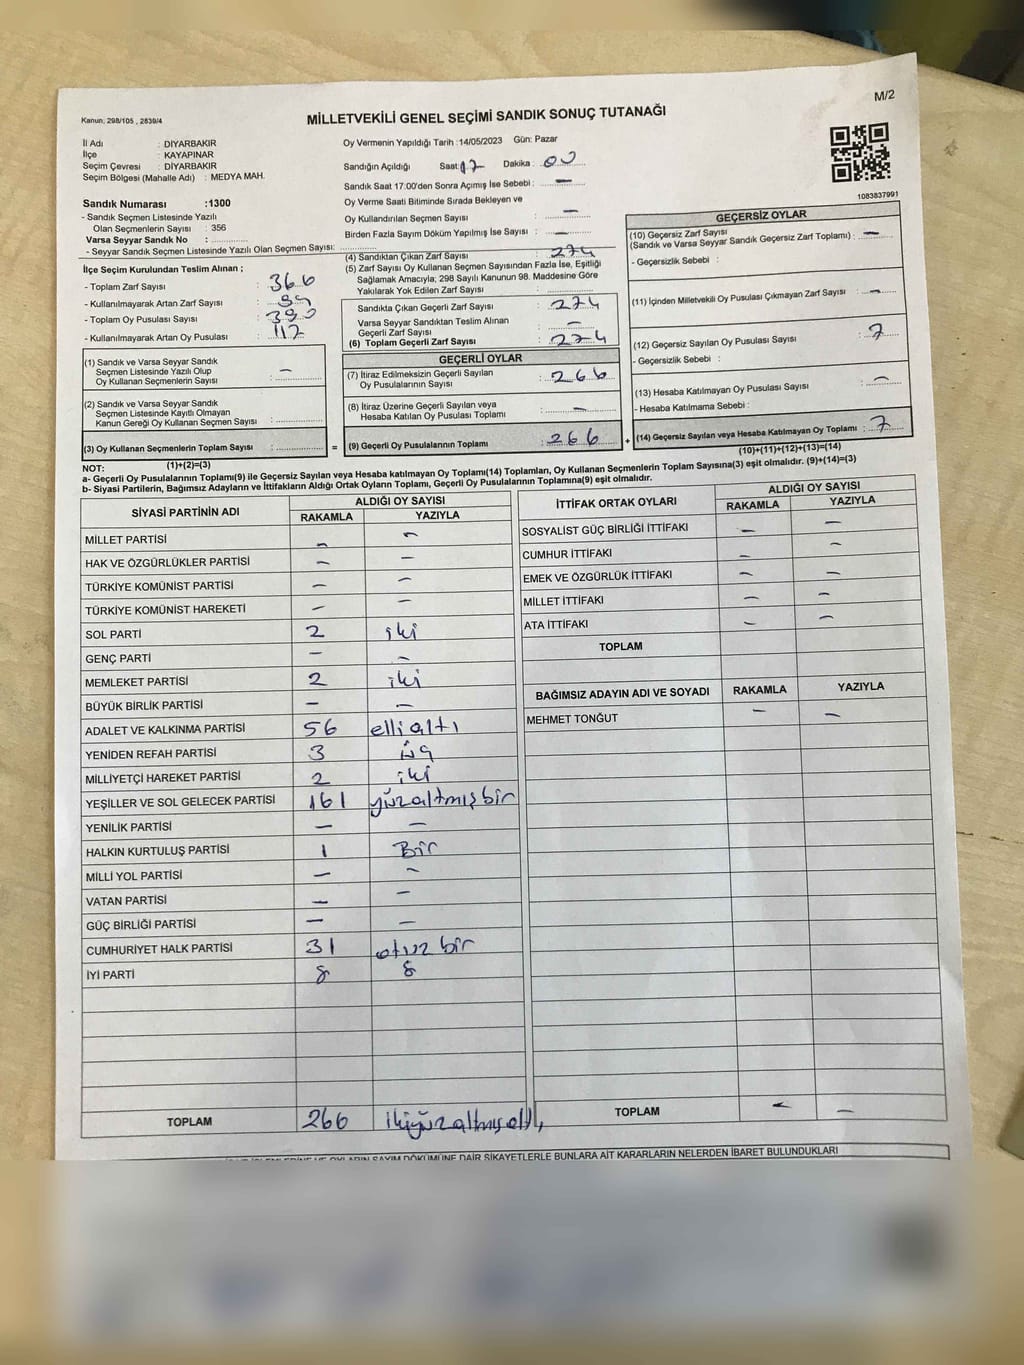 M/2
Kanun, 298/105 , 2839/4
MİLLETVEKİLİ GENEL SEÇİMİ SANDIK SONUÇ TUTANAĞI
İl Adı : DİYARBAKIR
İlçe : KAYAPINAR
Seçim Çevresi : DİYARBAKIR
Seçim Bölgesi (Mahalle Adı) : MEDYA MAH.
Oy Vermenin Yapıldığı Tarih :14/05/2023 Gün: Pazar
Sandığın Açıldığı Saat: 17 Dakika : 00
Sandık Saat 17:00'den Sonra Açımış İse Sebebi : –
Oy Verme Saati Bitiminde Sırada Bekleyen ve
Oy Kullandırılan Seçmen Sayısı : –
Birden Fazla Sayım Döküm Yapılmış İse Sayısı : –
1083837991
Sandık Numarası :1300
- Sandık Seçmen Listesinde Yazılı
Olan Seçmenlerin Sayısı : 356
Varsa Seyyar Sandık No :
- Seyyar Sandık Seçmen Listesinde Yazılı Olan Seçmen Sayısı:
İlçe Seçim Kurulundan Teslim Alınan ;
- Toplam Zarf Sayısı : 366
- Kullanılmayarak Artan Zarf Sayısı :
- Toplam Oy Pusulası Sayısı :
- Kullanılmayarak Artan Oy Pusulası : 112
(1) Sandık ve Varsa Seyyar Sandık
Seçmen Listesinde Yazılı Olup
Oy Kullanan Seçmenlerin Sayısı : –
(2) Sandık ve Varsa Seyyar Sandık
Seçmen Listesinde Kayıtlı Olmayan
Kanun Gereği Oy Kullanan Seçmen Sayısı :
(3) Oy Kullanan Seçmenlerin Toplam Sayısı :
(1)+(2)=(3)
(4) Sandıktan Çıkan Zarf Sayısı : 274
(5) Zarf Sayısı Oy Kullanan Seçmen Sayısından Fazla İse, Eşitliği
Sağlamak Amacıyla; 298 Sayılı Kanunun 98. Maddesine Göre
Yakılarak Yok Edilen Zarf Sayısı :
Sandıkta Çıkan Geçerli Zarf Sayısı : 274
Varsa Seyyar Sandıktan Teslim Alınan
Geçerli Zarf Sayısı : –
(6) Toplam Geçerli Zarf Sayısı : 274
GEÇERLİ OYLAR
(7) İtiraz Edilmeksizin Geçerli Sayılan
Oy Pusulalarının Sayısı : 266
(8) İtiraz Üzerine Geçerli Sayılan veya
Hesaba Katılan Oy Pusulası Toplamı : –
= (9) Geçerli Oy Pusulalarının Toplamı : 266 +
GEÇERSİZ OYLAR
(10) Geçersiz Zarf Sayısı
(Sandık ve Varsa Seyyar Sandık Geçersiz Zarf Toplamı) : –
- Geçersizlik Sebebi :
(11) İçinden Milletvekili Oy Pusulası Çıkmayan Zarf Sayısı : –
(12) Geçersiz Sayılan Oy Pusulası Sayısı : 7
- Geçersizlik Sebebi :
(13) Hesaba Katılmayan Oy Pusulası Sayısı : –
- Hesaba Katılmama Sebebi :
(14) Geçersiz Sayılan veya Hesaba Katılmayan Oy Toplamı : 7
(10)+(11)+(12)+(13)=(14)
NOT:
a- Geçerli Oy Pusulalarının Toplamı(9) ile Geçersiz Sayılan veya Hesaba katılmayan Oy Toplamı(14) Toplamları, Oy Kullanan Seçmenlerin Toplam Sayısına(3) eşit olmalıdır. (9)+(14)=(3)
b- Siyasi Partilerin, Bağımsız Adayların ve İttifakların Aldığı Ortak Oyların Toplamı, Geçerli Oy Pusulalarının Toplamına(9) eşit olmalıdır.
SİYASİ PARTİNİN ADI ALDIĞI OY SAYISI
RAKAMLA YAZIYLA
MİLLET PARTİSİ – –
HAK VE ÖZGÜRLÜKLER PARTİSİ – –
TÜRKİYE KOMÜNİST PARTİSİ – –
TÜRKİYE KOMÜNİST HAREKETİ – –
SOL PARTİ 2 iki
GENÇ PARTİ – –
MEMLEKET PARTİSİ 2 iki
BÜYÜK BİRLİK PARTİSİ – –
ADALET VE KALKINMA PARTİSİ 56 elli altı
YENİDEN REFAH PARTİSİ 3 üç
MİLLİYETÇİ HAREKET PARTİSİ 2 iki
YEŞİLLER VE SOL GELECEK PARTİSİ 161 yüzaltmışbir
YENİLİK PARTİSİ – –
HALKIN KURTULUŞ PARTİSİ 1 Bir
MİLLİ YOL PARTİSİ – –
VATAN PARTİSİ – –
GÜÇ BİRLİĞİ PARTİSİ – –
CUMHURİYET HALK PARTİSİ 31 otuz bir
İYİ PARTİ 8 8
TOPLAM 266 ikiyüzaltmışaltı
İTTİFAK ORTAK OYLARI ALDIĞI OY SAYISI
RAKAMLA YAZIYLA
SOSYALİST GÜÇ BİRLİĞİ İTTİFAKI – –
CUMHUR İTTİFAKI – –
EMEK VE ÖZGÜRLÜK İTTİFAKI – –
MİLLET İTTİFAKI – –
ATA İTTİFAKI – –
TOPLAM
BAĞIMSIZ ADAYIN ADI VE SOYADI RAKAMLA YAZIYLA
MEHMET TONĞUT – –
TOPLAM – –
SAYIM DÖKÜMÜNE DAİR ŞİKAYETLERLE BUNLARA AİT KARARLARIN NELERDEN İBARET BULUNDUKLARI